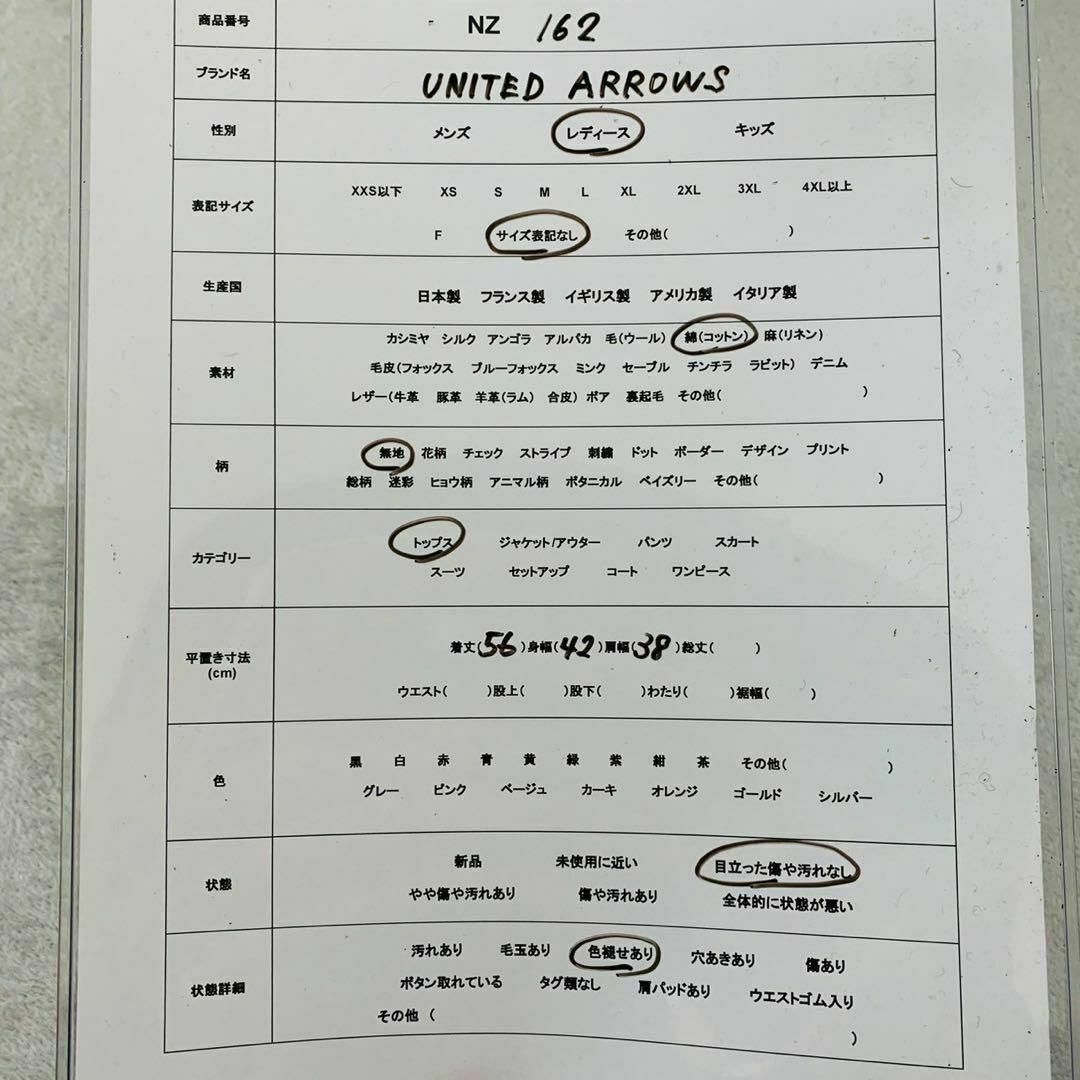 商品番号 NZ 162
ブランド名 UNITED ARROWS
性別 メンズ レディース キッズ
表記サイズ XXS以下 XS S M L XL 2XL 3XL 4XL以上
F サイズ表記なし その他( )
生産国 日本製 フランス製 イギリス製 アメリカ製 イタリア製
素材 カシミヤ シルク アンゴラ アルパカ 毛(ウール) 綿(コットン) 麻(リネン)
毛皮(フォックス ブルーフォックス ミンク セーブル チンチラ ラビット) デニム
レザー(牛革 豚革 羊革(ラム) 合皮) ボア 裏起毛 その他( )
柄 無地 花柄 チェック ストライプ 刺繍 ドット ボーダー デザイン プリント
総柄 迷彩 ヒョウ柄 アニマル柄 ボタニカル ペイズリー その他( )
カテゴリー トップス ジャケット/アウター パンツ スカート
スーツ セットアップ コート ワンピース
平置き寸法 着丈(56)身幅(42)肩幅(38)総丈( )
(cm) ウエスト( )股上( )股下( )わたり( )裾幅( )
色 黒 白 赤 青 黄 緑 紫 紺 茶 その他( )
グレー ピンク ベージュ カーキ オレンジ ゴールド シルバー
状態 新品 未使用に近い 目立った傷や汚れなし
やや傷や汚れあり 傷や汚れあり 全体的に状態が悪い
状態詳細 汚れあり 毛玉あり 色褪せあり 穴あきあり 傷あり
ボタン取れている タグ類なし 肩パッドあり ウエストゴム入り
その他 ( )